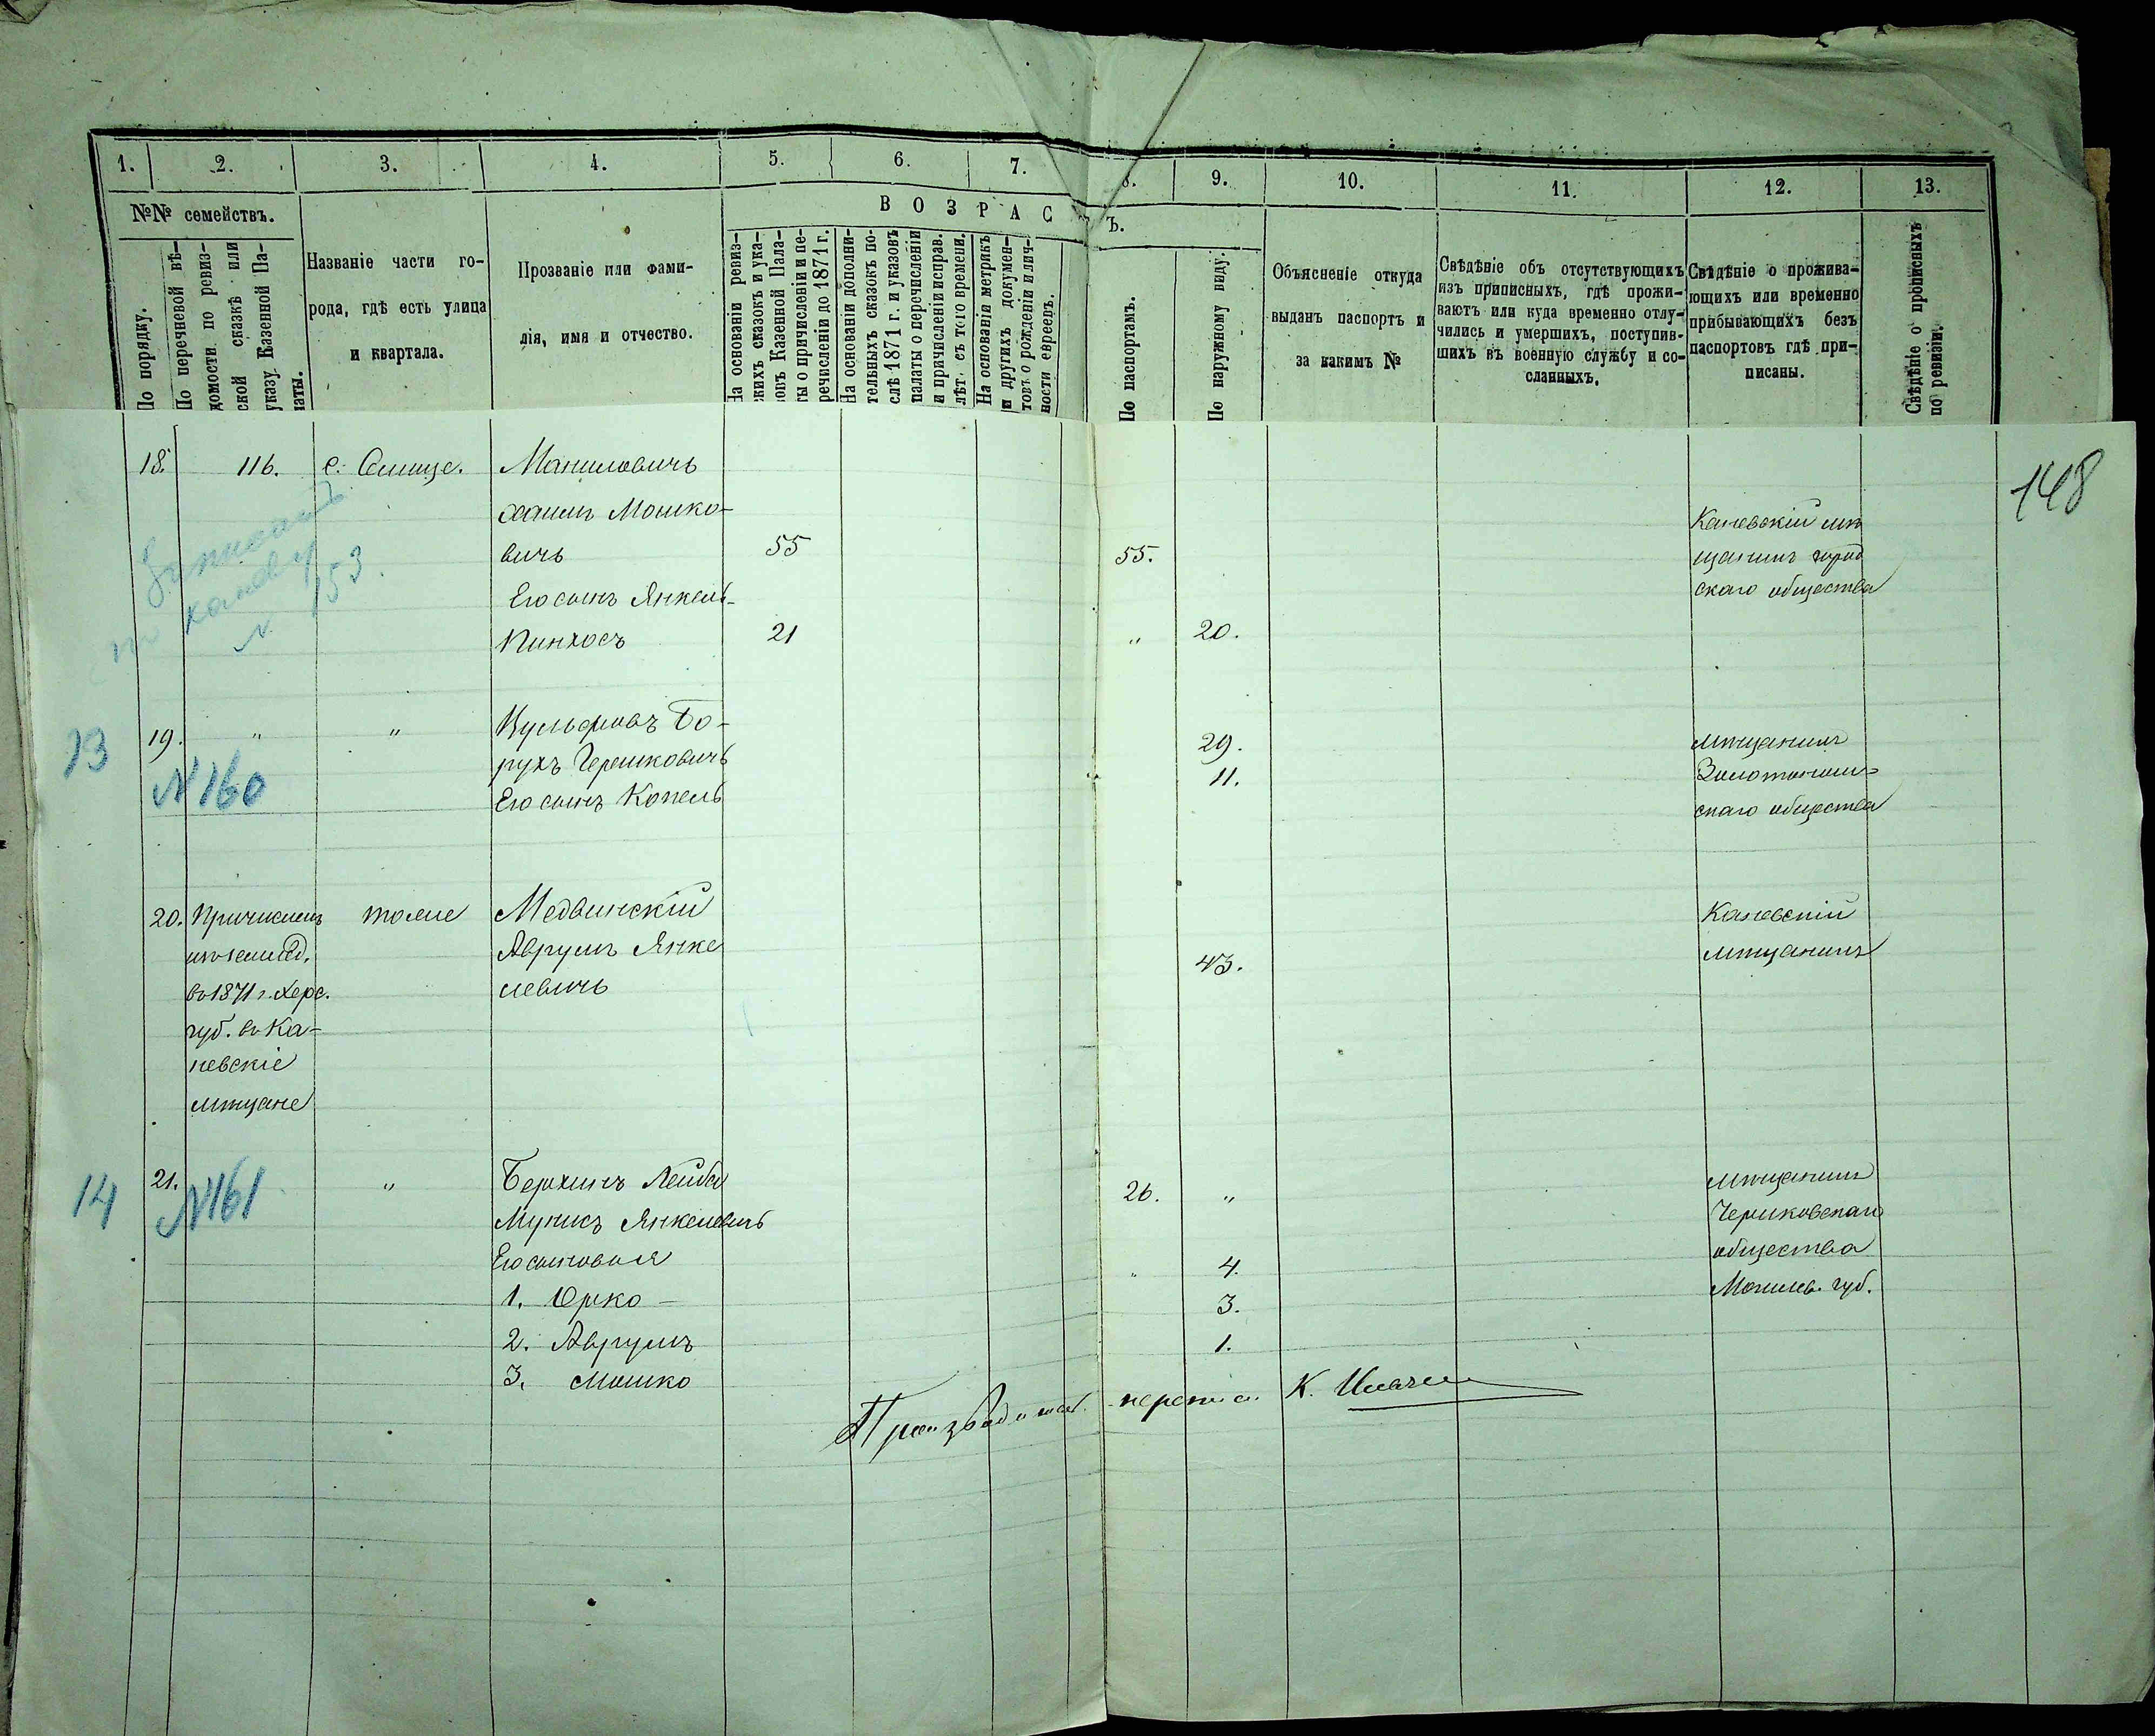 1. 2. 3. 4. 5. 6. 7. 8. 9. 10. 11. 12. 13.
№№ семействъ.
По порядку.
По перечневой вѣ-
домости по ревиз-
ской сказкѣ или
указу Казенной Па-
латы.
Названіе части го-
рода, гдѣ есть улица
и квартала.
Прозваніе или фами-
лія, имя и отчество.
ВОЗРАС Ъ.
На основаніи ревиз-
скихъ сказокъ и ука-
зовъ Казенной Пала-
ты о причисленіи и пе-
речисленіи до 1871 г.
На основаніи дополни-
тельныхъ сказокъ по-
слѣ 1871 г. и указовъ
палаты о перечисленіи
и причисленіи исправ.
лѣт. съ того времени.
На основаніи метрикъ
и другихъ докумен-
товъ о рожденіи и лич-
ности евреевъ.
По паспортамъ.
По наружному виду.
Объясненіе откуда
выданъ паспортъ и
за какимъ №
Свѣдѣніе объ отсутствующихъ
изъ приписныхъ, гдѣ прожи-
ваютъ или куда временно отлу-
чились и умершихъ, поступив-
шихъ въ военную службу и со-
сланныхъ.
Свѣдѣніе о прожива-
ющихъ или временно
прибывающихъ безъ
паспортовъ гдѣ при-
писаны.
Свѣдѣніе о прописныхъ
по ревизіи.
148
18. 116. с. Селище. Маниловичъ
Хаимъ Мошко-
вичъ 55 55.
Его сынъ Янкель-
Пинхосъ 21 " 20.
Каневскій мѣ
щанинъ город
скаго общества
Записанъ
по Каневу
N. 153.
13
19. " " Вульфовъ Бо-
рухъ Гершковичъ 29.
Его сынъ Копель 11.
N 160
мѣщанинъ
Золотоношь-
скаго общества
20. Причисленъ
изъ земл﻿ед.
въ 1871 г. Херс.
губ. въ Ка-
невскіе
мѣщане
тоже
Медвинскій
Аврумъ Янке
левичъ 43.
Каневскій
мѣщанинъ
14
21. N161 "
Берхинъ Лейба 26. "
Мунисъ Янкелевичъ
Его сыновья
1. Юрко - 4.
2. Аврумъ 3.
3. Мошко 1.
мѣщанинъ
Чериковскаго
общества
Могилев. губ.
Производител. переписи К.